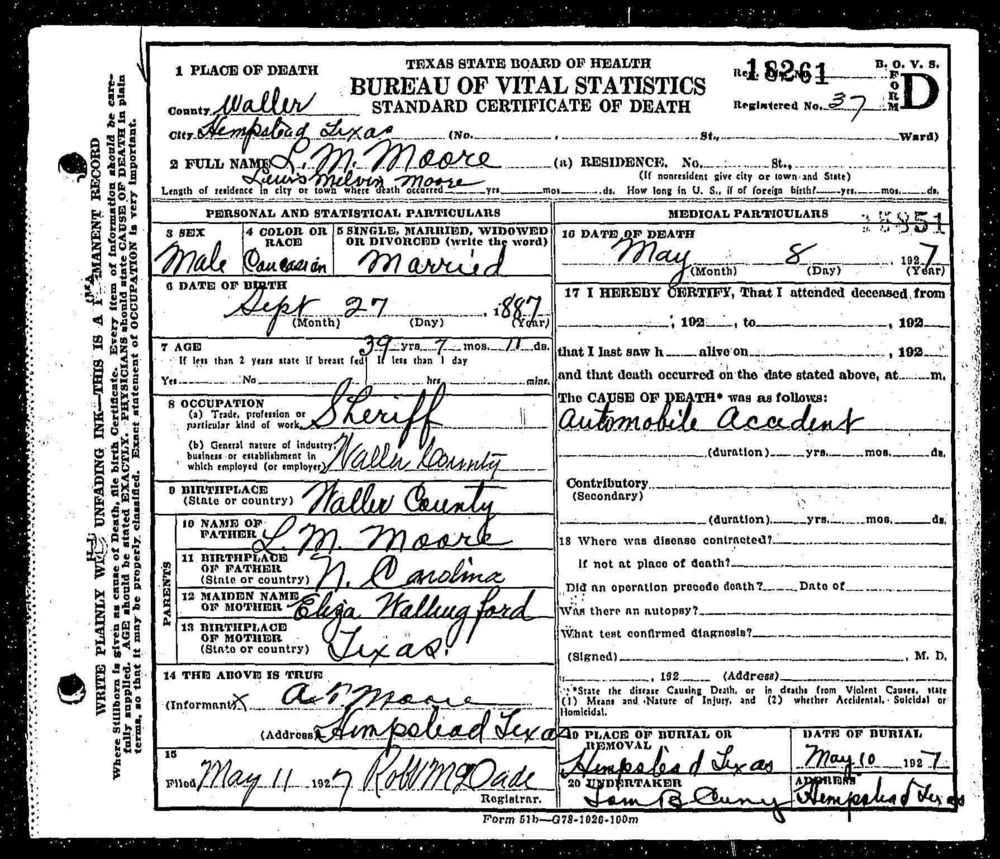 TEXAS STATE BOARD OF HEALTH
BUREAU OF VITAL STATISTICS
STANDARD CERTIFICATE OF DEATH
18261
B. O. V. S.
FORM D
Registered No. 37
1 PLACE OF DEATH
County Waller
City Hempstead Texas (No. , St., Ward)
2 FULL NAME L. M. Moore (a) RESIDENCE. No. St.,
Lewis Melvin Moore (If nonresident give city or town and State)
Length of residence in city or town where death occurred yrs. mos. ds. How long in U. S., if of foreign birth? yrs. mos. ds.
PERSONAL AND STATISTICAL PARTICULARS
3 SEX
Male
4 COLOR OR
RACE
Caucasian
5 SINGLE, MARRIED, WIDOWED
OR DIVORCED (write the word)
Married
6 DATE OF BIRTH
Sept 27, 1887
(Month) (Day) (Year)
7 AGE 39 yrs. 7 mos. 11 ds.
If less than 2 years state if breast fed If less than 1 day
Yes No hrs. mins.
8 OCCUPATION
(a) Trade, profession or
particular kind of work Sheriff
(b) General nature of industry,
business or establishment in
which employed (or employer) Waller County
9 BIRTHPLACE
(State or country) Waller County
PARENTS
10 NAME OF
FATHER L. M. Moore
11 BIRTHPLACE
OF FATHER
(State or country) N. Carolina
12 MAIDEN NAME
OF MOTHER Eliza Wallingford
13 BIRTHPLACE
OF MOTHER
(State or country) Texas.
14 THE ABOVE IS TRUE
(Informant) X Moore
(Address) Hempstead Texas
15
Filed May 11 1927 Robt McDade
Registrar.
MEDICAL PARTICULARS
16 DATE OF DEATH
May 8 1927
(Month) (Day) (Year)
17 I HEREBY CERTIFY, That I attended deceased from
, 192 , to , 192
that I last saw h alive on , 192
and that death occurred on the date stated above, at m.
The CAUSE OF DEATH* was as follows:
Automobile Accident
(duration) yrs. mos. ds.
Contributory
(Secondary)
(duration) yrs. mos. ds.
18 Where was disease contracted?
If not at place of death?
Did an operation precede death? Date of
Was there an autopsy?
What test confirmed diagnosis?
(Signed) , M. D.
, 192 (Address)
*State the disease Causing Death, or in deaths from Violent Causes, state
(1) Means and Nature of Injury, and (2) whether Accidental, Suicidal or
Homicidal.
19 PLACE OF BURIAL OR
REMOVAL
Hempstead Texas
DATE OF BURIAL
May 10 1927
20 UNDERTAKER
Tom B Cuny
ADDRESS
Hempstead Texas
Form 51b—G78-1026-100m
WRITE PLAINLY WITH UNFADING INK—THIS IS A PERMANENT RECORD
Where Stillborn is given as cause of Death, file birth Certificate. Every item of information should be care-
fully supplied. AGE should be stated EXACTLY. PHYSICIANS should state CAUSE OF DEATH in plain
terms, so that it may be properly classified. Exact statement of OCCUPATION is very important.